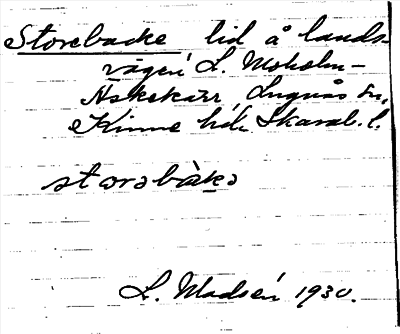 Storebacke lid å lands-
vägen L. Moholm-
Askekärr, Lugnås sn,
Kinne hd. Skarab. l.
storəbàkə
L. Madsén 1930.